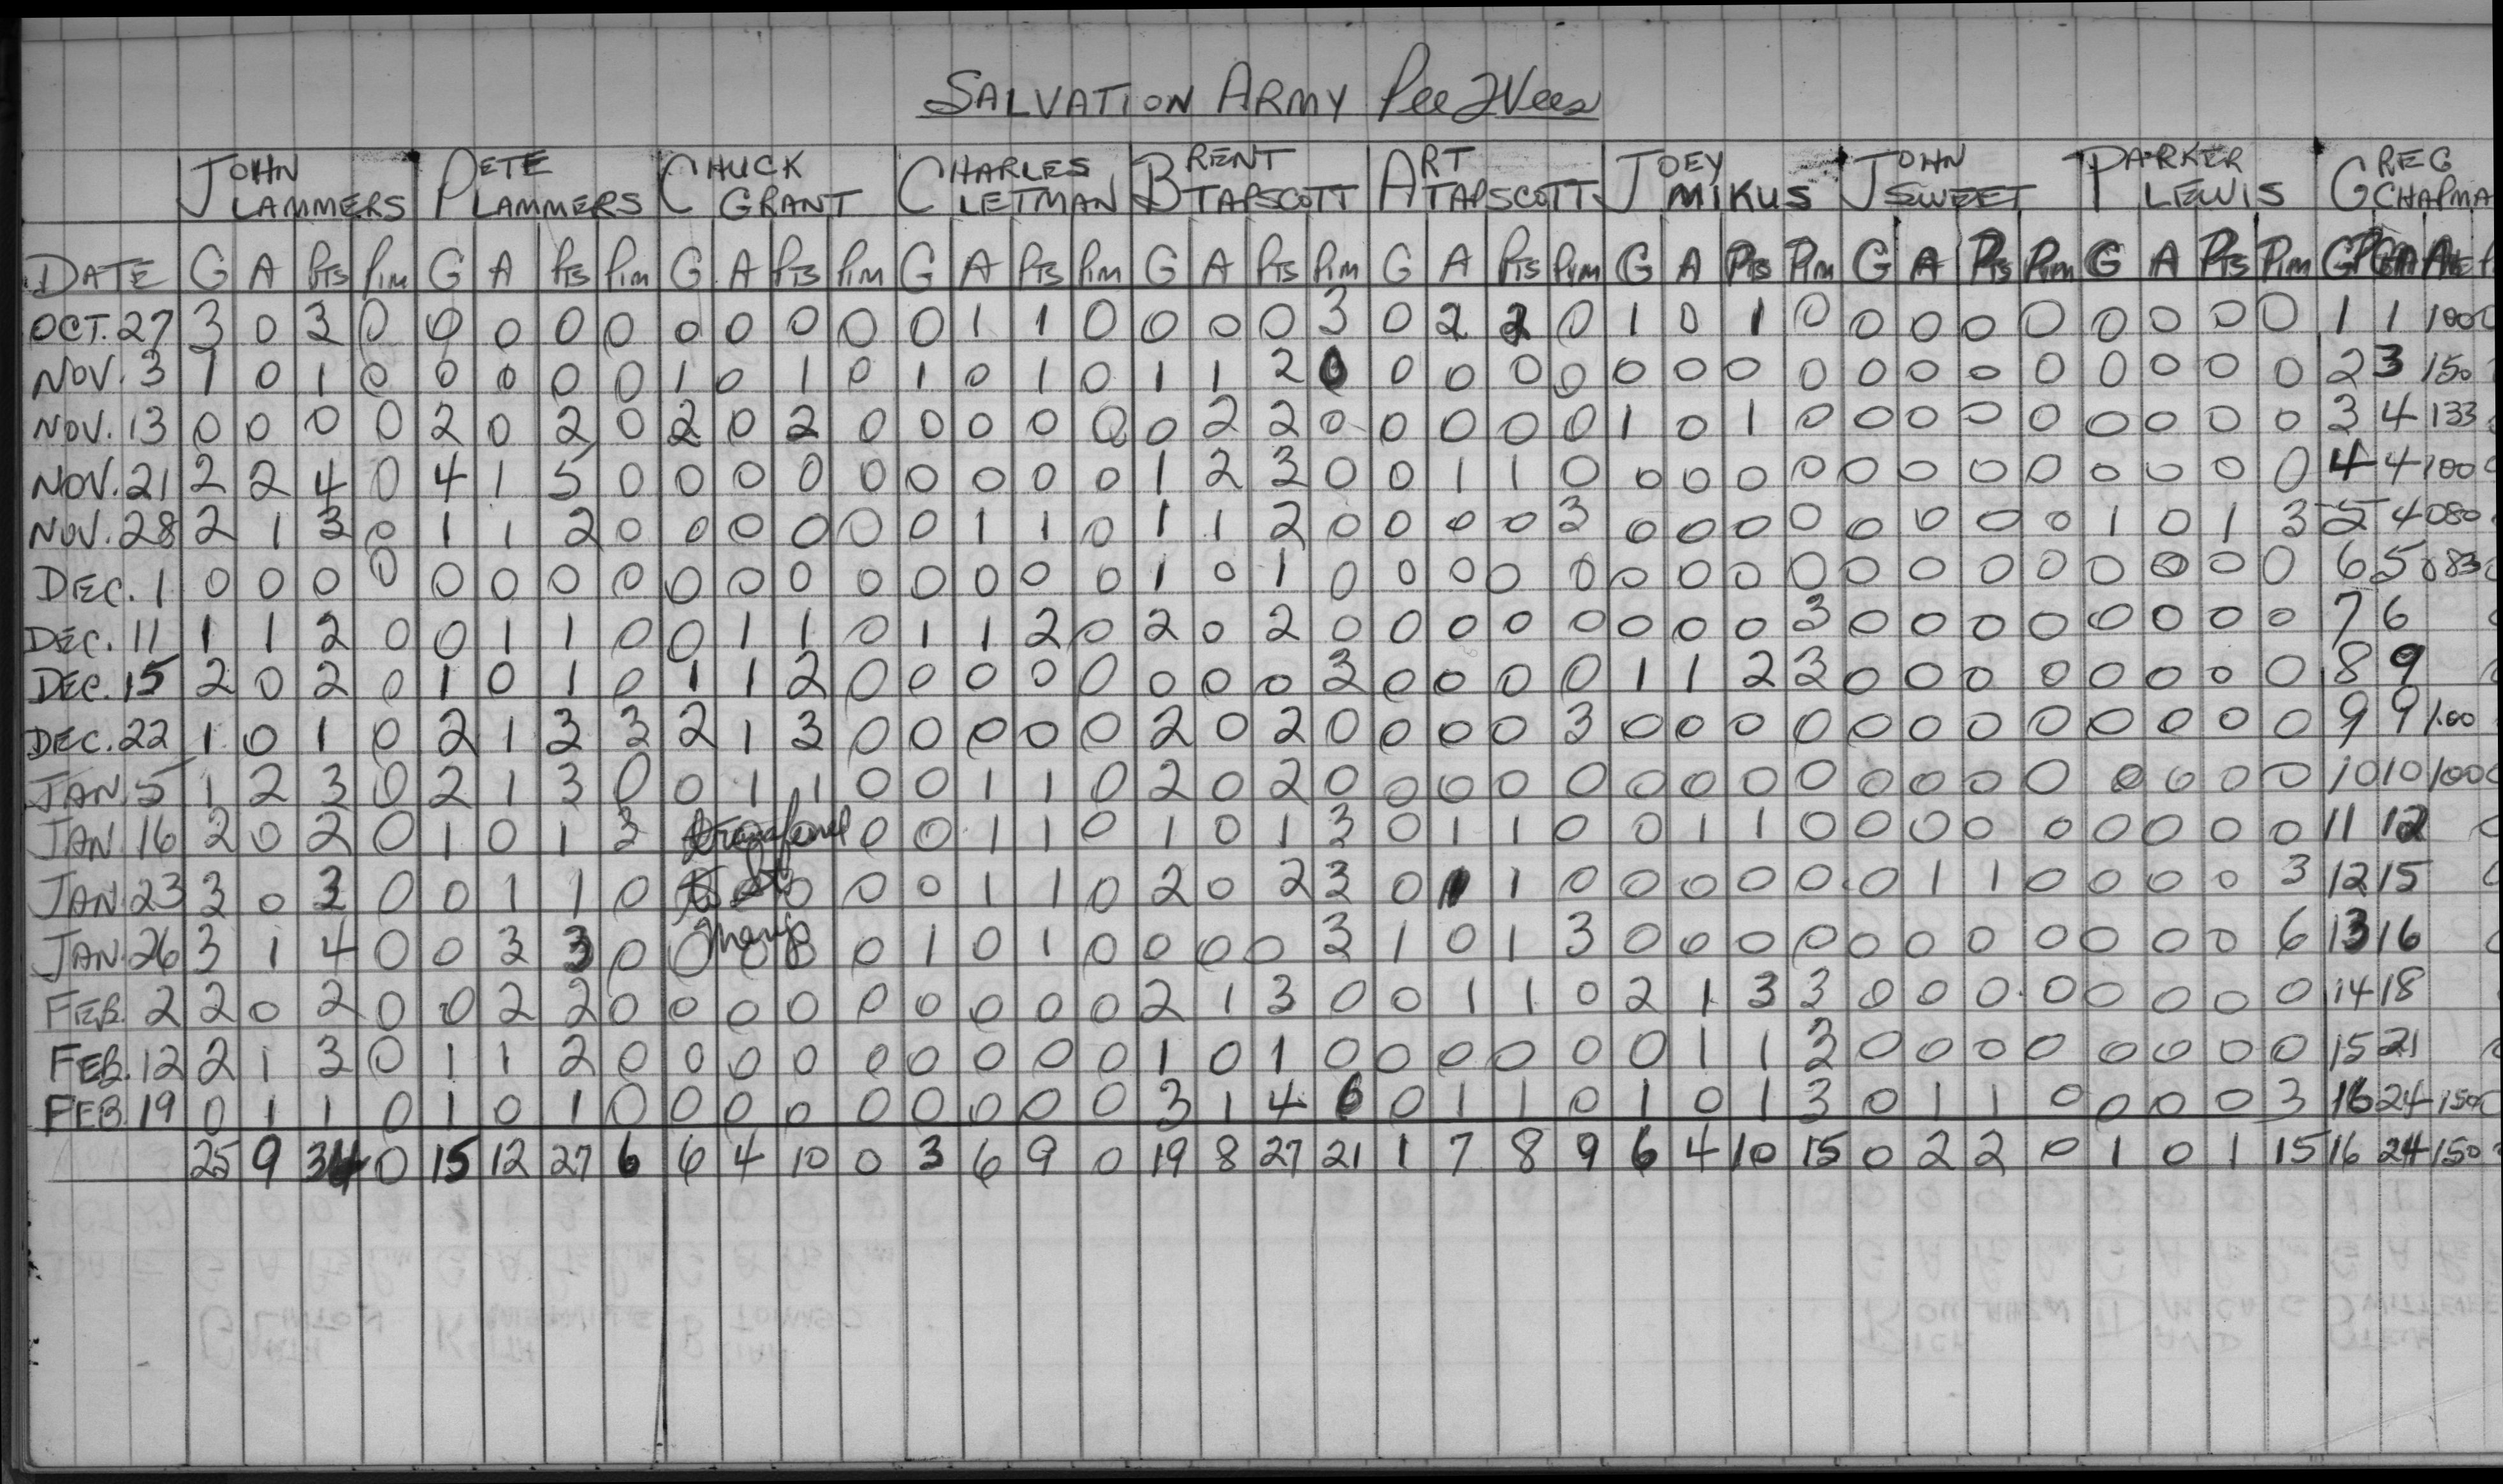 SALVATION ARMY Pee Wees
JOHN LAMMERS PETE LAMMERS CHUCK GRANT CHARLES LETMAN BRENT TAPSCOTT ART TAPSCOTT JOEY MIKUS JOHN SWEET PARKER LEWIS GREG CHAPMA
DATE G A Pts Pim G A Pts Pim G A Pts Pim G A Pts Pim G A Pts Pim G A Pts Pim G A Pts Pim G A Pts Pim G A Pts Pim GP GA Ave
OCT. 27 3 0 3 0 0 0 0 0 0 0 0 0 0 1 1 0 0 0 0 3 0 2 2 0 1 0 1 0 0 0 0 0 0 0 0 0 1 1 100
NOV. 3 1 0 1 0 0 0 0 0 1 0 1 0 1 0 1 0 1 1 2 0 0 0 0 0 0 0 0 0 0 0 0 0 0 0 0 0 2 3 150
NOV. 13 0 0 0 0 2 0 2 0 2 0 2 0 0 0 0 0 0 2 2 0 0 0 0 0 1 0 1 0 0 0 0 0 0 0 0 0 3 4 133
NOV. 21 2 2 4 0 4 1 5 0 0 0 0 0 0 0 0 0 1 2 3 0 0 1 1 0 0 0 0 0 0 0 0 0 0 0 0 0 4 4 100
NOV. 28 2 1 3 0 1 1 2 0 0 0 0 0 0 1 1 0 1 1 2 0 0 0 0 3 0 0 0 0 0 0 0 0 1 0 1 3 5 4 080
DEC. 1 0 0 0 0 0 0 0 0 0 0 0 0 0 0 0 0 1 0 1 0 0 0 0 0 0 0 0 0 0 0 0 0 0 0 0 0 6 5 083
DEC. 11 1 1 2 0 0 1 1 0 0 1 1 0 1 1 2 0 2 0 2 0 0 0 0 0 0 0 0 3 0 0 0 0 0 0 0 0 7 6
DEC. 15 2 0 2 0 1 0 1 0 1 1 2 0 0 0 0 0 0 0 0 3 0 0 0 0 1 1 2 3 0 0 0 0 0 0 0 0 8 9
DEC. 22 1 0 1 0 2 1 3 3 2 1 3 0 0 0 0 0 2 0 2 0 0 0 0 3 0 0 0 0 0 0 0 0 0 0 0 0 9 9 1.00
JAN. 5 1 2 3 0 2 1 3 0 0 1 1 0 0 1 1 0 2 0 2 0 0 0 0 0 0 0 0 0 0 0 0 0 0 0 0 0 10 10 100
JAN. 16 2 0 2 0 1 0 1 3 0 0 1 1 0 1 0 1 3 0 1 1 0 0 1 1 0 0 0 0 0 0 0 0 0 11 12
JAN. 23 3 0 3 0 0 1 1 0 0 0 1 1 0 2 0 2 3 0 1 1 0 0 0 0 0 0 1 1 0 0 0 0 3 12 15
JAN. 26 3 1 4 0 0 3 3 0 0 0 1 0 1 0 0 0 0 3 1 0 1 3 0 0 0 0 0 0 0 0 0 0 0 6 13 16
FEB. 2 2 0 2 0 0 2 2 0 0 0 0 0 0 0 0 0 2 1 3 0 0 1 1 0 2 1 3 3 0 0 0 0 0 0 0 0 14 18
FEB. 12 2 1 3 0 1 1 2 0 0 0 0 0 0 0 0 0 1 0 1 0 0 0 0 0 0 1 1 3 0 0 0 0 0 0 0 0 15 21
FEB. 19 0 1 1 0 1 0 1 0 0 0 0 0 0 0 0 0 3 1 4 6 0 1 1 0 1 0 1 3 0 1 1 0 0 0 0 3 16 24 150
25 9 34 0 15 12 27 6 6 4 10 0 3 6 9 0 19 8 27 21 1 7 8 9 6 4 10 15 0 2 2 0 1 0 1 15 16 24 150